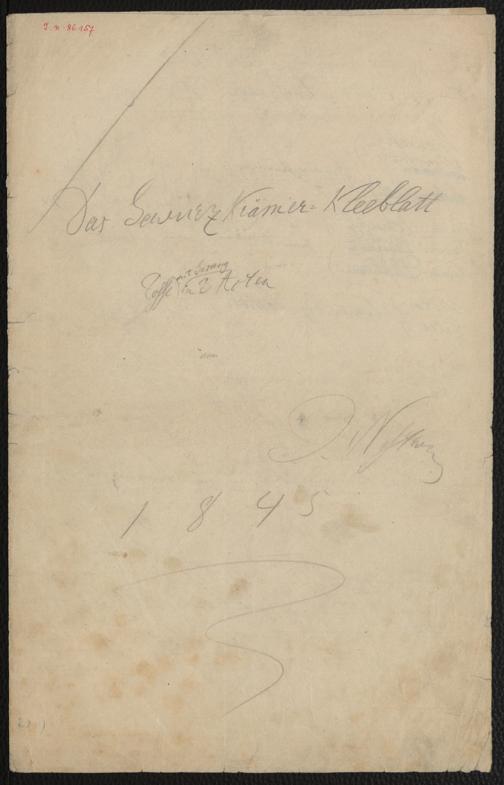 J. N. 86.157
Das Gewürzkrämer=Kleeblatt
mit Gesang
Posse in 3 Acten
von
J. Nestroy
1845